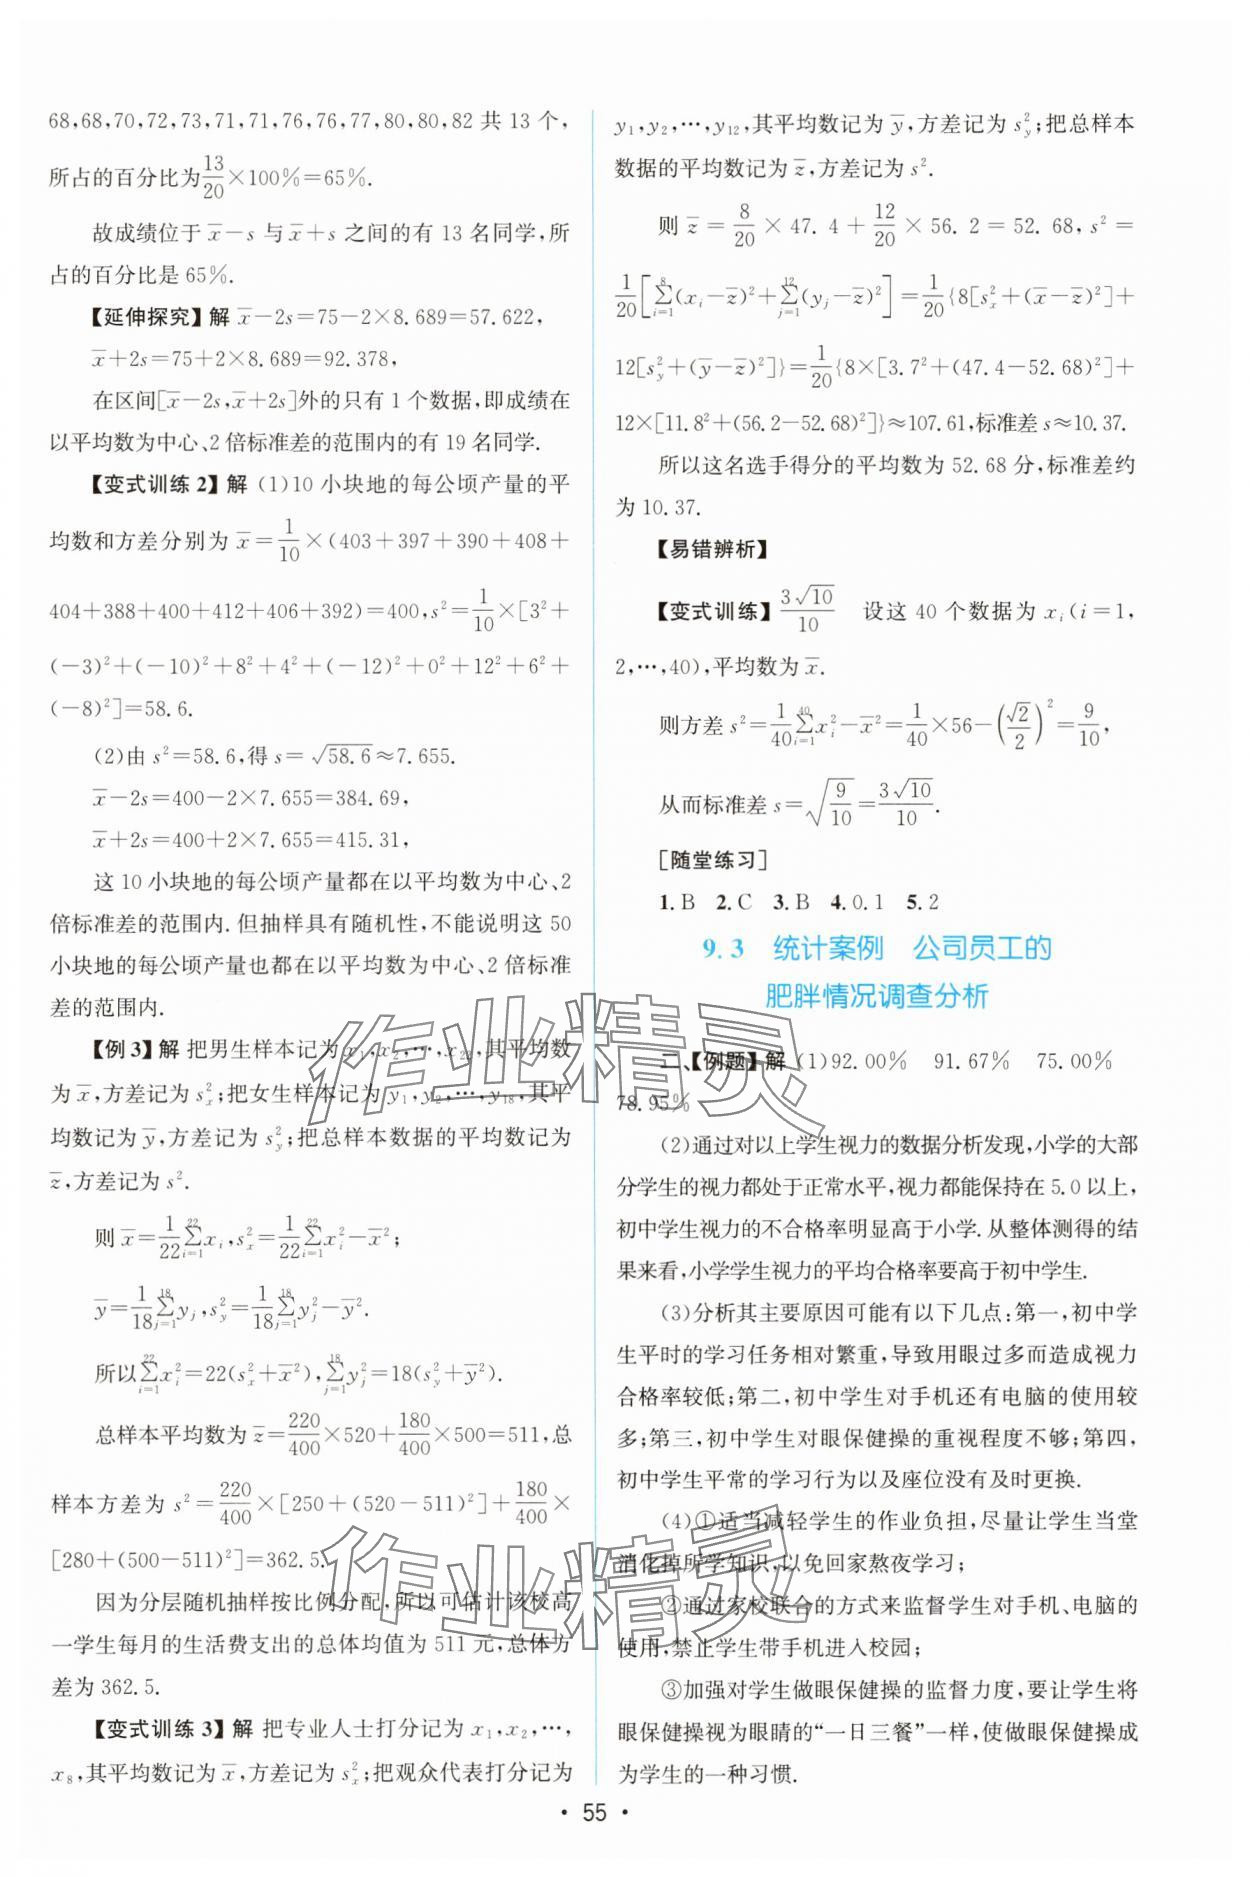 68,68,70,72,73,71,71,76,76,77,80,80,82 共 13 个,
所占的百分比为13/20×100%=65%.
故成绩位于 x̄-s 与 x̄+s 之间的有 13 名同学,所
占的百分比是 65%.
【延伸探究】解 x̄-2s=75-2×8.689=57.622,
x̄+2s=75+2×8.689=92.378,
在区间[x̄-2s,x̄+2s]外的只有 1 个数据,即成绩在
以平均数为中心、2 倍标准差的范围内的有 19 名同学.
【变式训练 2】解 (1)10 小块地的每公顷产量的平
均数和方差分别为 x̄=1/10×(403+397+390+408+
404+388+400+412+406+392)=400,s²=1/10×[3²+
(-3)²+(-10)²+8²+4²+(-12)²+0²+12²+6²+
(-8)²]=58.6.
(2)由 s²=58.6,得 s=√58.6≈7.655.
x̄-2s=400-2×7.655=384.69,
x̄+2s=400+2×7.655=415.31,
这 10 小块地的每公顷产量都在以平均数为中心、2
倍标准差的范围内.但抽样具有随机性,不能说明这 50
小块地的每公顷产量也都在以平均数为中心、2 倍标准
差的范围内.
【例 3】解 把男生样本记为 x₁,x₂,…,x₂₂,其平均数
为 x̄,方差记为 sₓ²;把女生样本记为 y₁,y₂,…,y₁₈,其平
均数记为 ȳ,方差记为 s_y²;把总样本数据的平均数记为
z̄,方差记为 s².
则 x̄=1/22 ∑_{i=1}^{22} x_i,sₓ²=1/22 ∑_{i=1}^{22} x_i²-x̄²;
ȳ=1/18 ∑_{j=1}^{18} y_j,s_y²=1/18 ∑_{j=1}^{18} y_j²-ȳ².
所以∑_{i=1}^{22} x_i²=22(sₓ²+x̄²),∑_{j=1}^{18} y_j²=18(s_y²+ȳ²).
总样本平均数为 z̄=220/400×520+180/400×500=511,总
样本方差为 s²=220/400×[250+(520-511)²]+180/400×
[280+(500-511)²]=362.5.
因为分层随机抽样按比例分配,所以可估计该校高
一学生每月的生活费支出的总体均值为 511 元,总体方
差为 362.5.
【变式训练 3】解 把专业人士打分记为 x₁,x₂,…,
x₈,其平均数记为 x̄,方差记为 sₓ²;把观众代表打分记为
y₁,y₂,…,y₁₂,其平均数记为 ȳ,方差记为 s_y²;把总样本
数据的平均数记为 z̄,方差记为 s².
则 z̄=8/20×47.4+12/20×56.2=52.68,s²=
1/20[∑_{i=1}^{8}(x_i-z̄)²+∑_{j=1}^{12}(y_j-z̄)²]=1/20{8[sₓ²+(x̄-z̄)²]+
12[s_y²+(ȳ-z̄)²]}=1/20{8×[3.7²+(47.4-52.68)²]+
12×[11.8²+(56.2-52.68)²]}≈107.61,标准差 s≈10.37.
所以这名选手得分的平均数为 52.68 分,标准差约
为 10.37.
【易错辨析】
【变式训练】3√10/10 设这 40 个数据为 x_i(i=1,
2,…,40),平均数为 x̄.
则方差 s²=1/40 ∑_{i=1}^{40} x_i²-x̄²=1/40×56-(√2/2)²=9/10,
从而标准差 s=√(9/10)=3√10/10.
[随堂练习]
1.B 2.C 3.B 4.0.1 5.2
9.3 统计案例 公司员工的
肥胖情况调查分析
二、【例题】解 (1)92.00% 91.67% 75.00%
78.95%
(2)通过对以上学生视力的数据分析发现,小学的大部
分学生的视力都处于正常水平,视力都能保持在 5.0 以上,
初中学生视力的不合格率明显高于小学.从整体测得的结
果来看,小学学生视力的平均合格率要高于初中学生.
(3)分析其主要原因可能有以下几点:第一,初中学
生平时的学习任务相对繁重,导致用眼过多而造成视力
合格率较低;第二,初中学生对手机还有电脑的使用较
多;第三,初中学生对眼保健操的重视程度不够;第四,
初中学生平常的学习行为以及座位没有及时更换.
(4)①适当减轻学生的作业负担,尽量让学生当堂
消化掉所学知识,以免回家熬夜学习;
②通过家校联合的方式来监督学生对手机、电脑的
使用,禁止学生带手机进入校园;
③加强对学生做眼保健操的监督力度,要让学生将
眼保健操视为眼睛的“一日三餐”一样,使做眼保健操成
为学生的一种习惯.
作业精灵
作业精灵
· 55 ·